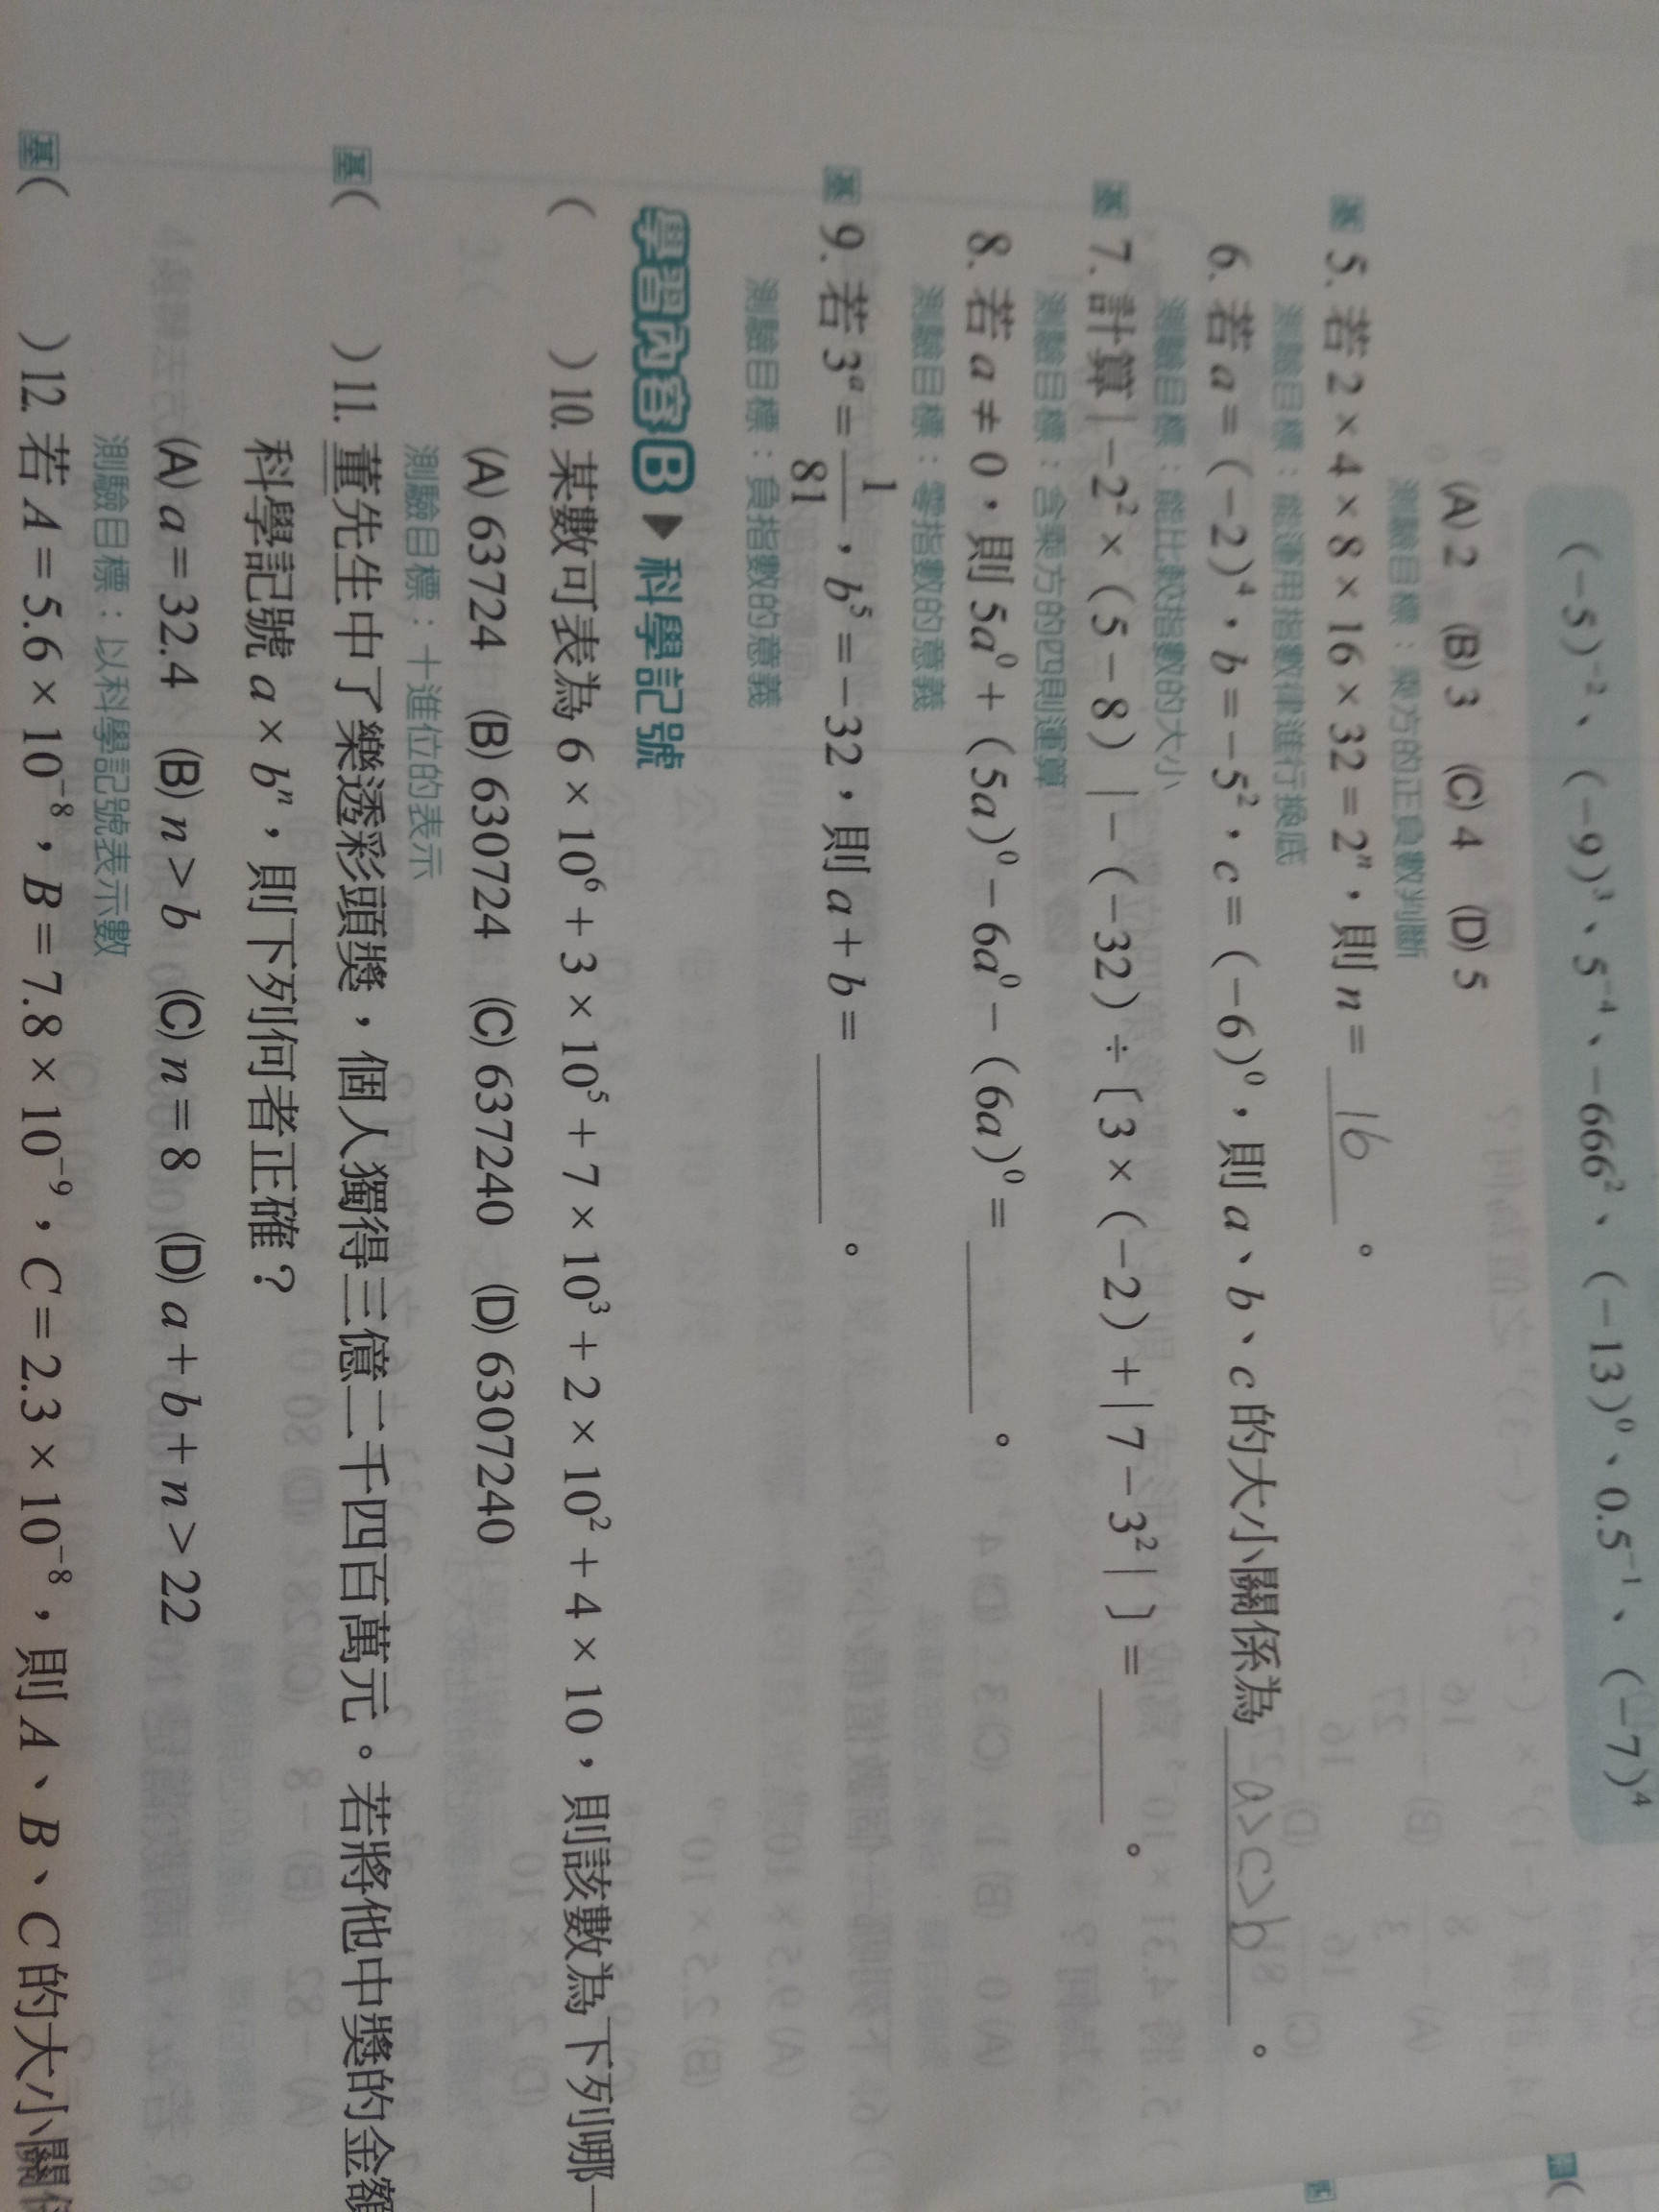 (-5)⁻²、(-9)³、5⁻⁴、-666²、(-13)⁰、0.5⁻¹、(-7)⁴
(A) 2 (B) 3 (C) 4 (D) 5
測驗目標：乘方的正負數判斷
基 5. 若 2×4×8×16×32=2ⁿ，則 n= 16 。
測驗目標：能運用指數律進行換底
6. 若 a=(-2)⁴，b=-5²，c=(-6)⁰，則 a、b、c 的大小關係為 a>c>b 。
測驗目標：能比較指數的大小
基 7. 計算 |-2²×(5-8)|-(-32)÷〔3×(-2)+|7-3²|〕= ______ 。
測驗目標：含乘方的四則運算
8. 若 a≠0，則 5a⁰+(5a)⁰-6a⁰-(6a)⁰= ______ 。
測驗目標：零指數的意義
基 9. 若 3ᵃ=1/81，b⁵=-32，則 a+b= ______ 。
測驗目標：負指數的意義
學習內容B ▶ 科學記號
( ) 10. 某數可表為 6×10⁶+3×10⁵+7×10³+2×10²+4×10，則該數為下列哪一
(A) 63724 (B) 630724 (C) 637240 (D) 6307240
測驗目標：十進位的表示
基 ( ) 11. 董先生中了樂透彩頭獎，個人獨得三億二千四百萬元。若將他中獎的金額
科學記號 a×bⁿ，則下列何者正確？
(A) a=32.4 (B) n>b (C) n=8 (D) a+b+n>22
測驗目標：以科學記號表示數
基 ( ) 12. 若 A=5.6×10⁻⁸，B=7.8×10⁻⁹，C=2.3×10⁻⁸，則 A、B、C 的大小關係